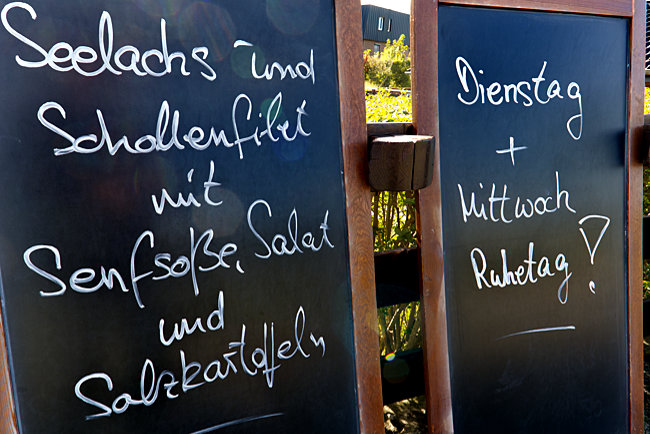 Seelachs - und
Schollenfilet
mit
Senfsoße, Salat
und
Salzkartoffeln
Dienstag
+
Mittwoch
Ruhetag!